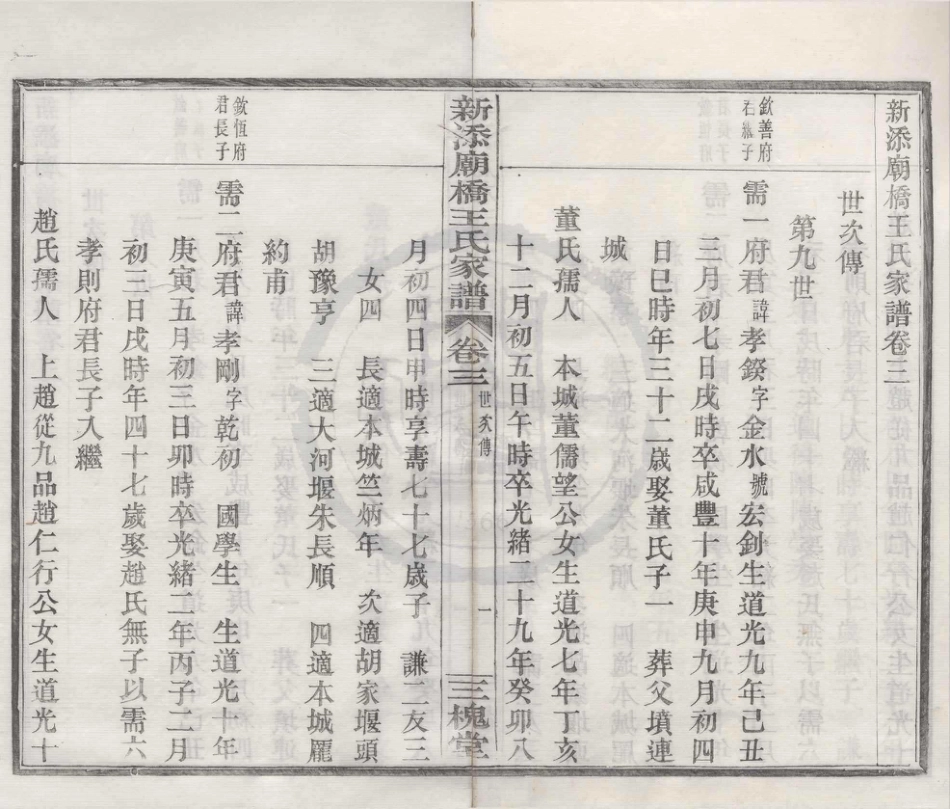 新添廟橋王氏家譜卷三
世次傳
第九世
欽善府
君繼子
需一府君諱孝鎩字金水號宏釗生道光九年己丑
三月初七日戌時卒咸豐十年庚申九月初四
日巳時年三十二歲娶董氏子一 葬父墳連
城
董氏孺人 本城董儒望公女生道光七年丁亥
十二月初五日午時卒光緒二十九年癸卯八
新添廟橋王氏家譜 卷三 世次傳 一 三槐堂
月初四日申時享壽七十七歲子 謙二友三
女四 長適本城竺炳年 次適胡家堰頭
胡豫亨 三適大河堰朱長順 四適本城龎
約甫
欽恆府
君長子
需二府君諱孝剛字乾初 國學生 生道光十年
庚寅五月初三日卯時卒光緒二年丙子二月
初三日戌時年四十七歲娶趙氏無子以需六
孝則府君長子入繼
趙氏孺人 上趙從九品趙仁行公女生道光十